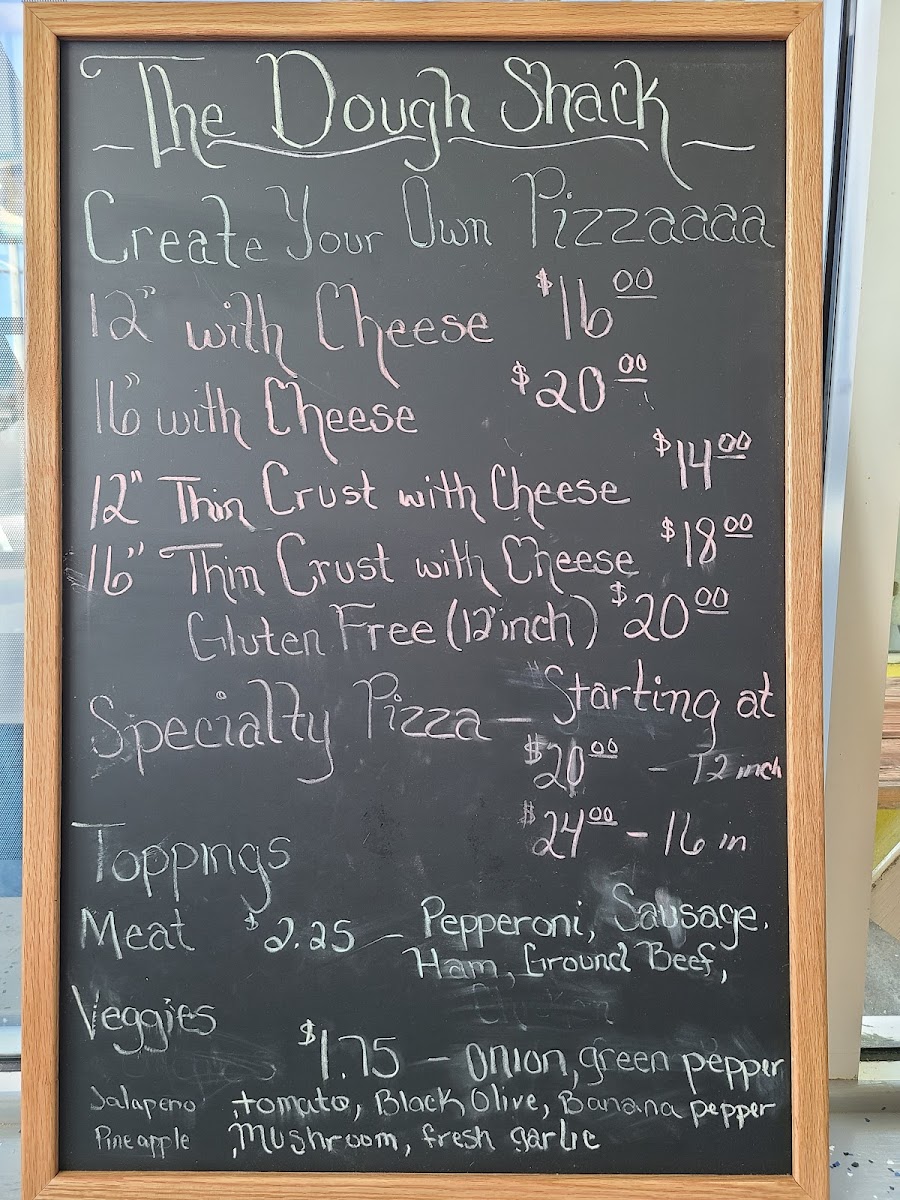 The Dough Shack
Create Your Own Pizzaaaaa
12" with Cheese $16.00
16" with Cheese $20.00
12" Thin Crust with Cheese $14.00
16" Thin Crust with Cheese $18.00
Gluten Free (12"inch) $20.00
Specialty Pizza - Starting at
$20.00 - 12 inch
$24.00 - 16 in
Toppings
Meat $2.25 - Pepperoni, Sausage,
Ham, Ground Beef,
Chicken
Veggies
$1.75 - onion, green pepper
Jalapeno , tomato, Black Olive, Banana pepper
Pineapple , Mushroom, fresh garlic